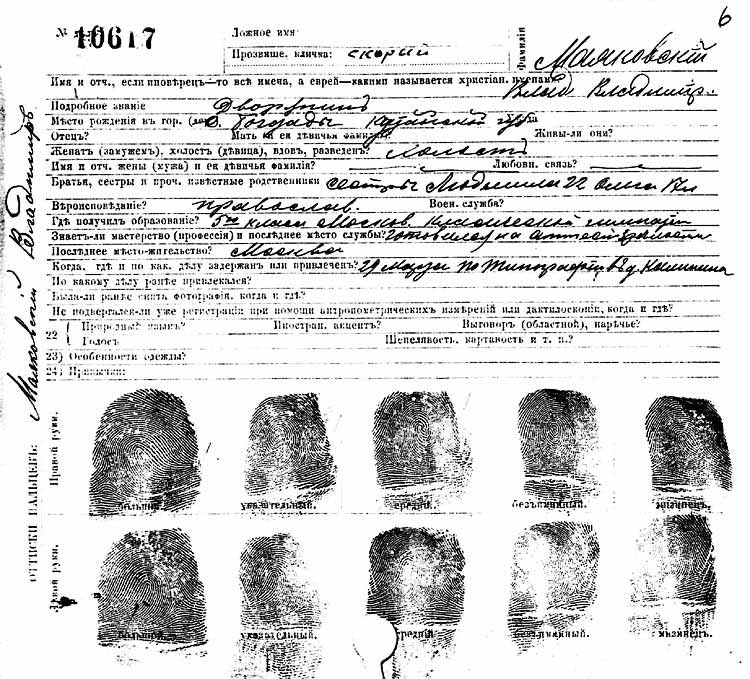 6
№ 10617
Ложное имя
Прозвище. кличка: скорий
Фамилія Маяковскій
Имя и отч., если иновѣрецъ—то всѣ имена, а еврей—какимъ называется христіан. Владимір.
Подробное званіе Дворянинъ
Мѣсто рожденія въ гор. С. Багдады Кутаисской губ
Отецъ? Мать и ея дѣвичья фамилія? Живы-ли они?
Женатъ (замужемъ), холостъ (дѣвица), вдовъ, разведенъ? Холостъ
Имя и отч. жены (мужа) и ея дѣвичья фамилія? Любовн. связь?
Братья, сестры и проч. извѣстные родственники сестры Людмила 22 Ольга 17 л
Вѣроисповѣданіе? православ. Воен. служба?
Гдѣ получилъ образованіе? класса Москов. классической гимназіи
Знаетъ-ли мастерство (профессія) и послѣднее мѣсто службы? готовился на аттест. зрѣлости
Послѣднее мѣсто-жительство? Москва
Когда, гдѣ и по как. дѣлу задержанъ или привлеченъ? 29 Марта по типографіи въ д. Коноплина
По какому дѣлу ранѣе привлекался?
Была-ли ранѣе снята фотографія, когда и гдѣ?
Не подвергался-ли уже регистраціи при помощи антропометрическихъ измѣреній или дактилоскопіи, когда и гдѣ?
22 Природный языкъ? Иностран. акцентъ? Выговоръ (областной), нарѣчье?
Голосъ Шепелявость, картавость и т. п.?
23) Особенности одежды?
24) Привычки:
Маяковскій Владиміръ
ОТТИСКИ ПАЛЬЦЕВЪ:
Правой руки.
большой. указательный. средній. безъимянный. мизинецъ.
Лѣвой руки.
большой. указательный. средній. безъимянный. мизинецъ.